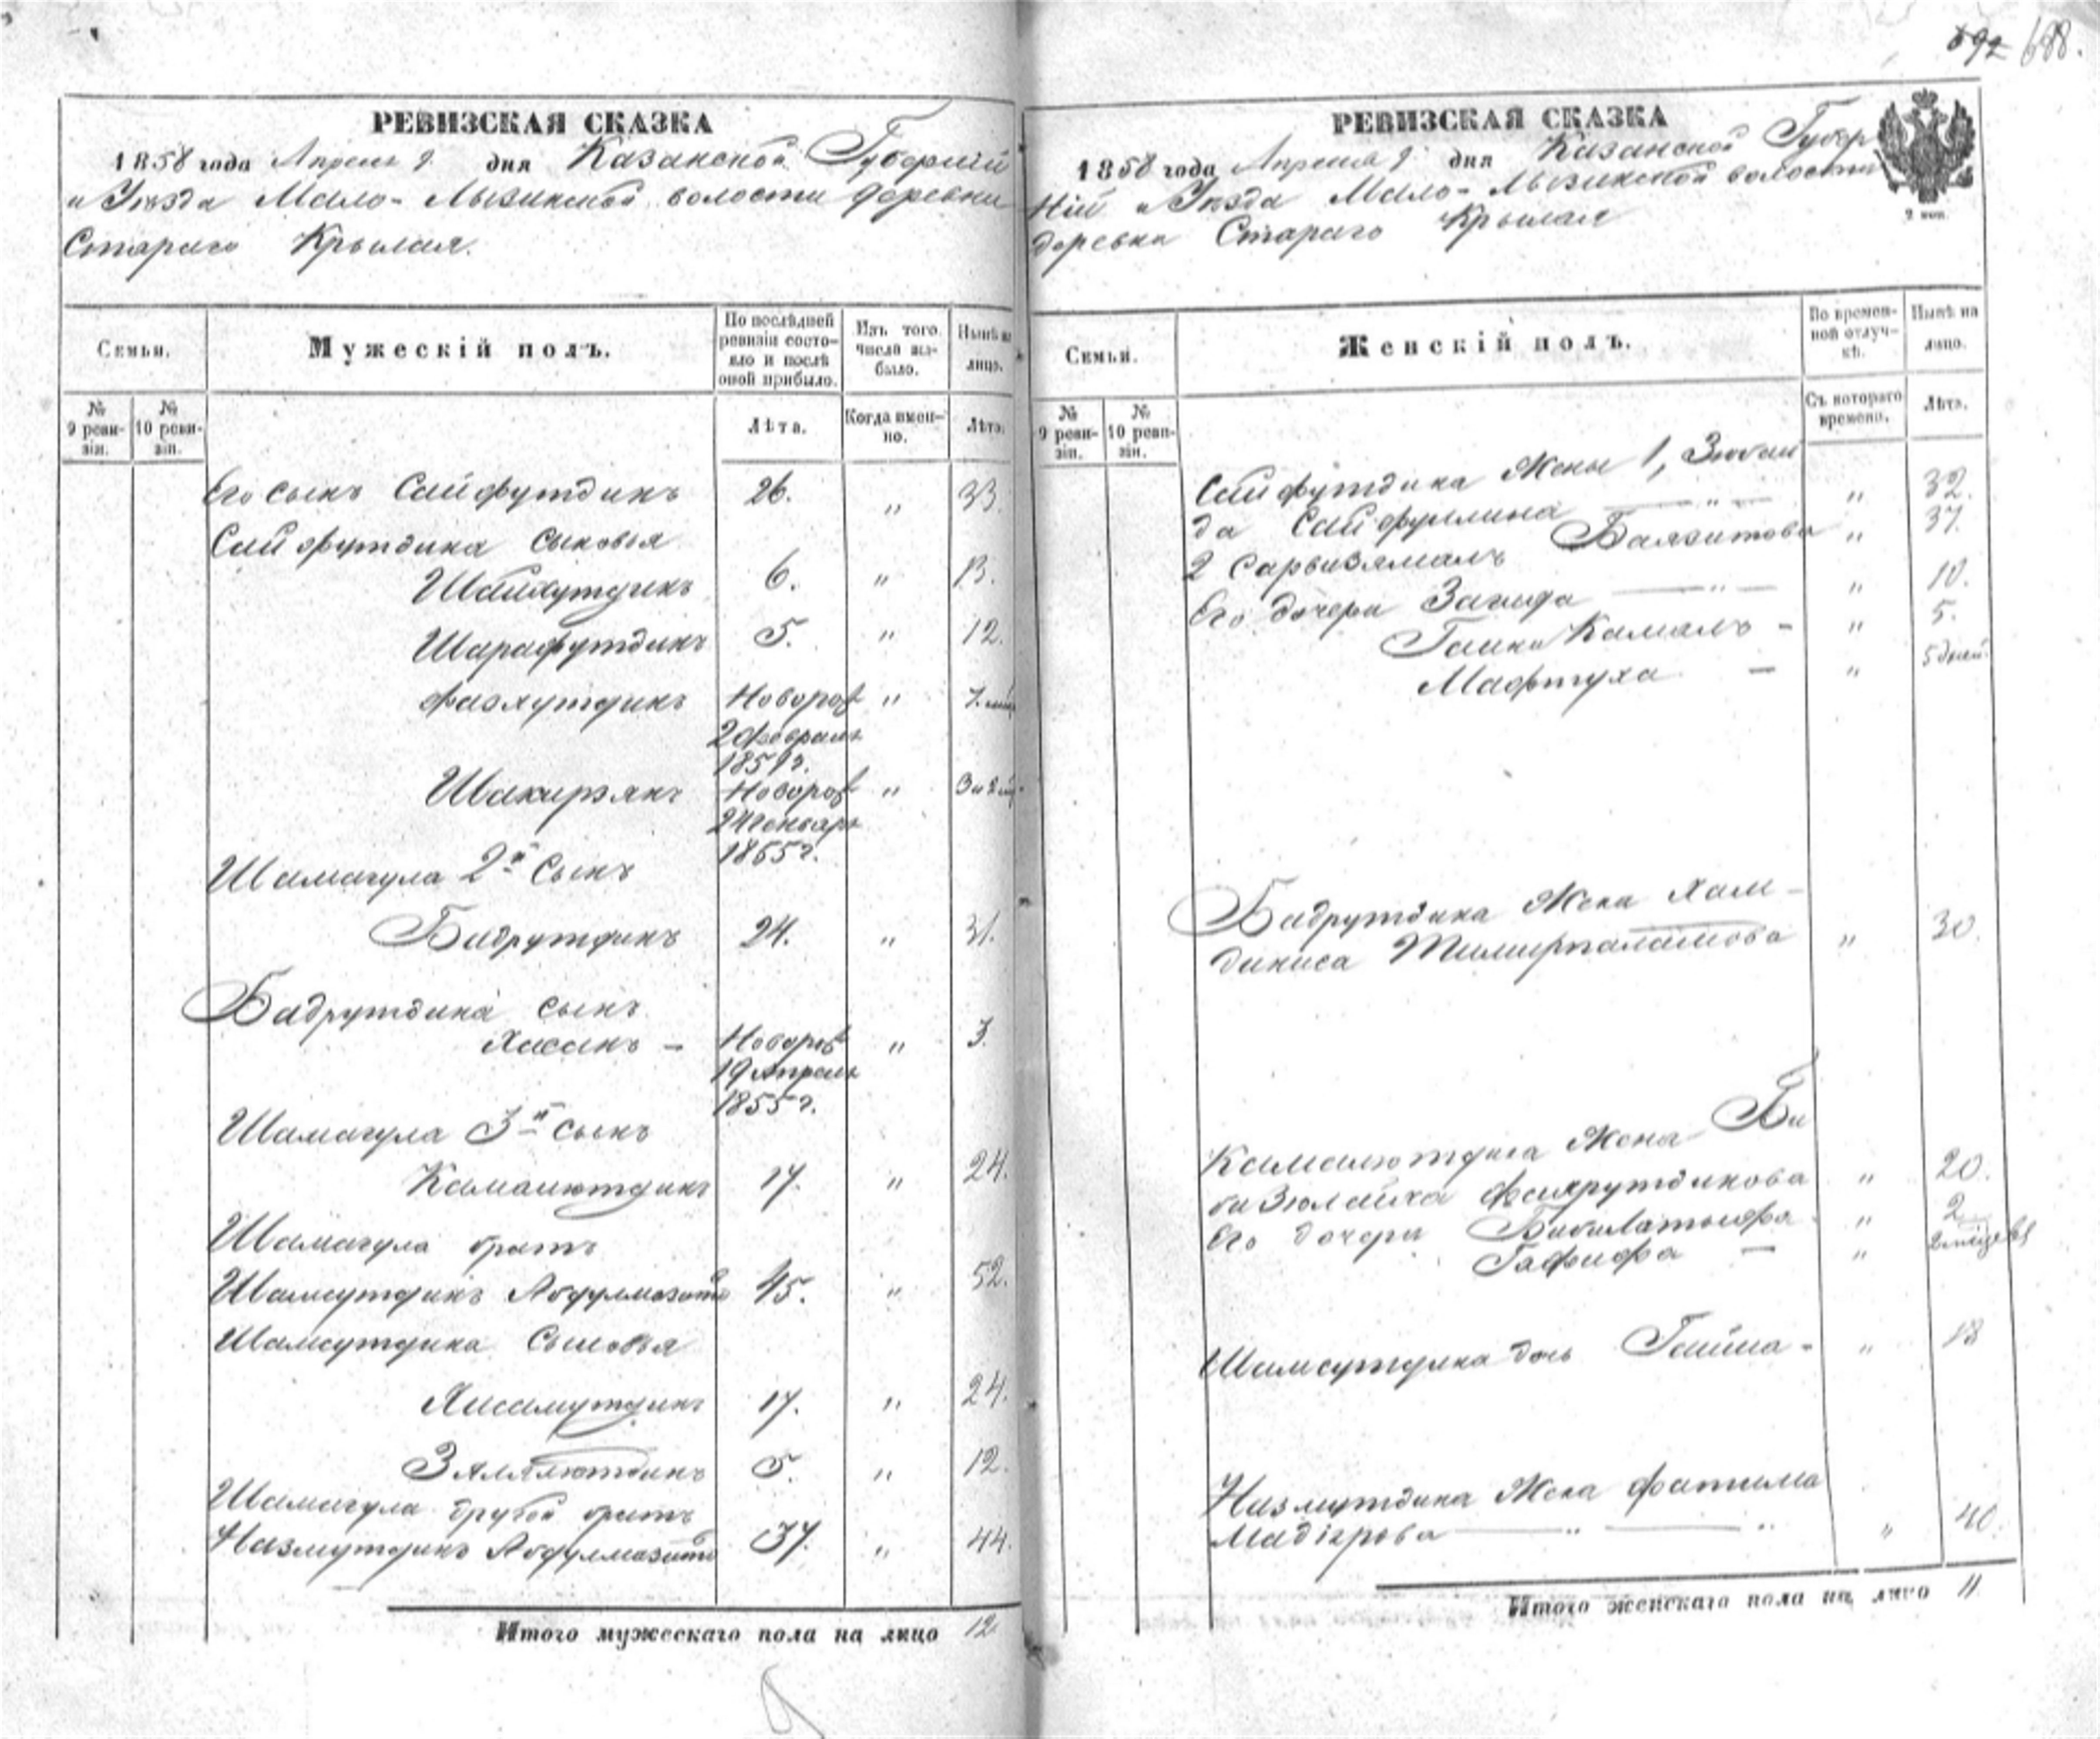 692 688.
РЕВИЗСКАЯ СКАЗКА
1858 года Апреля 9 дня Казанской Губерніи
и Уезда Мало-Лызинской волости деревни
Стараго Крылая.
Семьи.
Мужескій полъ.
По послѣдней ревизіи состояло и послѣ оной прибыло.
Изъ того числа выбыло.
Нынѣ на лицо.
№ 9 ревизіи.
№ 10 ревизіи.
Лѣта.
Когда именно.
Лѣта.
Его сынъ Сайфутдинъ 26. " 33.
Сайфутдина сыновья
6. " 13.
Шарафутдинъ 5. " 12.
Новорож "
2 февраля
185 г.
Шакирзянъ Новорож "
24 генваря
1855 г.
Шамагула 2й сынъ
Бадрутдинъ 24. " 31.
Бадрутдина сынъ
Хасанъ - Новорож " 3.
19 Апреля
1855 г.
Шамагула 3й сынъ
Камалютдинъ 17. " 24.
Шамагула братъ
Шамсутдинъ 45. " 52.
Шамсутдина Сыновья
Хисамутдинъ 17. " 24.
Зялялютдинъ 5. " 12.
Шамагула другой братъ
Назмутдинъ 37. " 44.
Итого мужескаго пола на лицо 12
РЕВИЗСКАЯ СКАЗКА
1858 года Апреля 9 дня Казанской Губер
ній и Уезда Мало-Лызинской волости
деревни Стараго Крылая
2 коп.
Семьи.
Женскій полъ.
Во временной отлучкѣ.
Нынѣ на лицо.
№ 9 ревизіи.
№ 10 ревизіи.
Съ котораго времени.
Лѣта.
Сайфутдина Жены 1, Зюбай
да Сайфуллина " 32.
2 Сарвизямалъ Баязитова " 37.
Его дочери Загида " 10.
Камалъ - " 5.
Мафтуха - " 5 дней
Бадрутдина Жена Хам-
диниса " 30.
Камалютдина Жена Би
би Зюлайха Фахрутдинова " 20.
Его дочери " 2
- " 2 месяцевъ
Шамсутдина дочь - " 18
Назмутдина Жена Фатима
" 40.
Итого женскаго пола на лицо 11